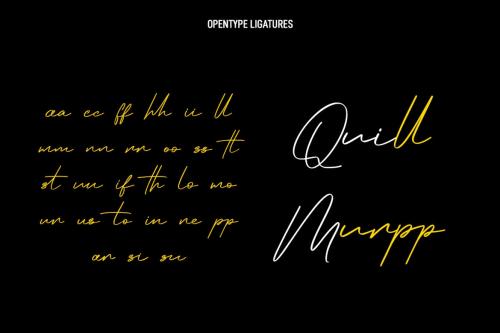 OPENTYPE LIGATURES
aa cc ff hh ii ll
mm nn rr oo ss tt
st uu if th lo mo
ur us to in ne pp
ar si su
Quill
Murpp